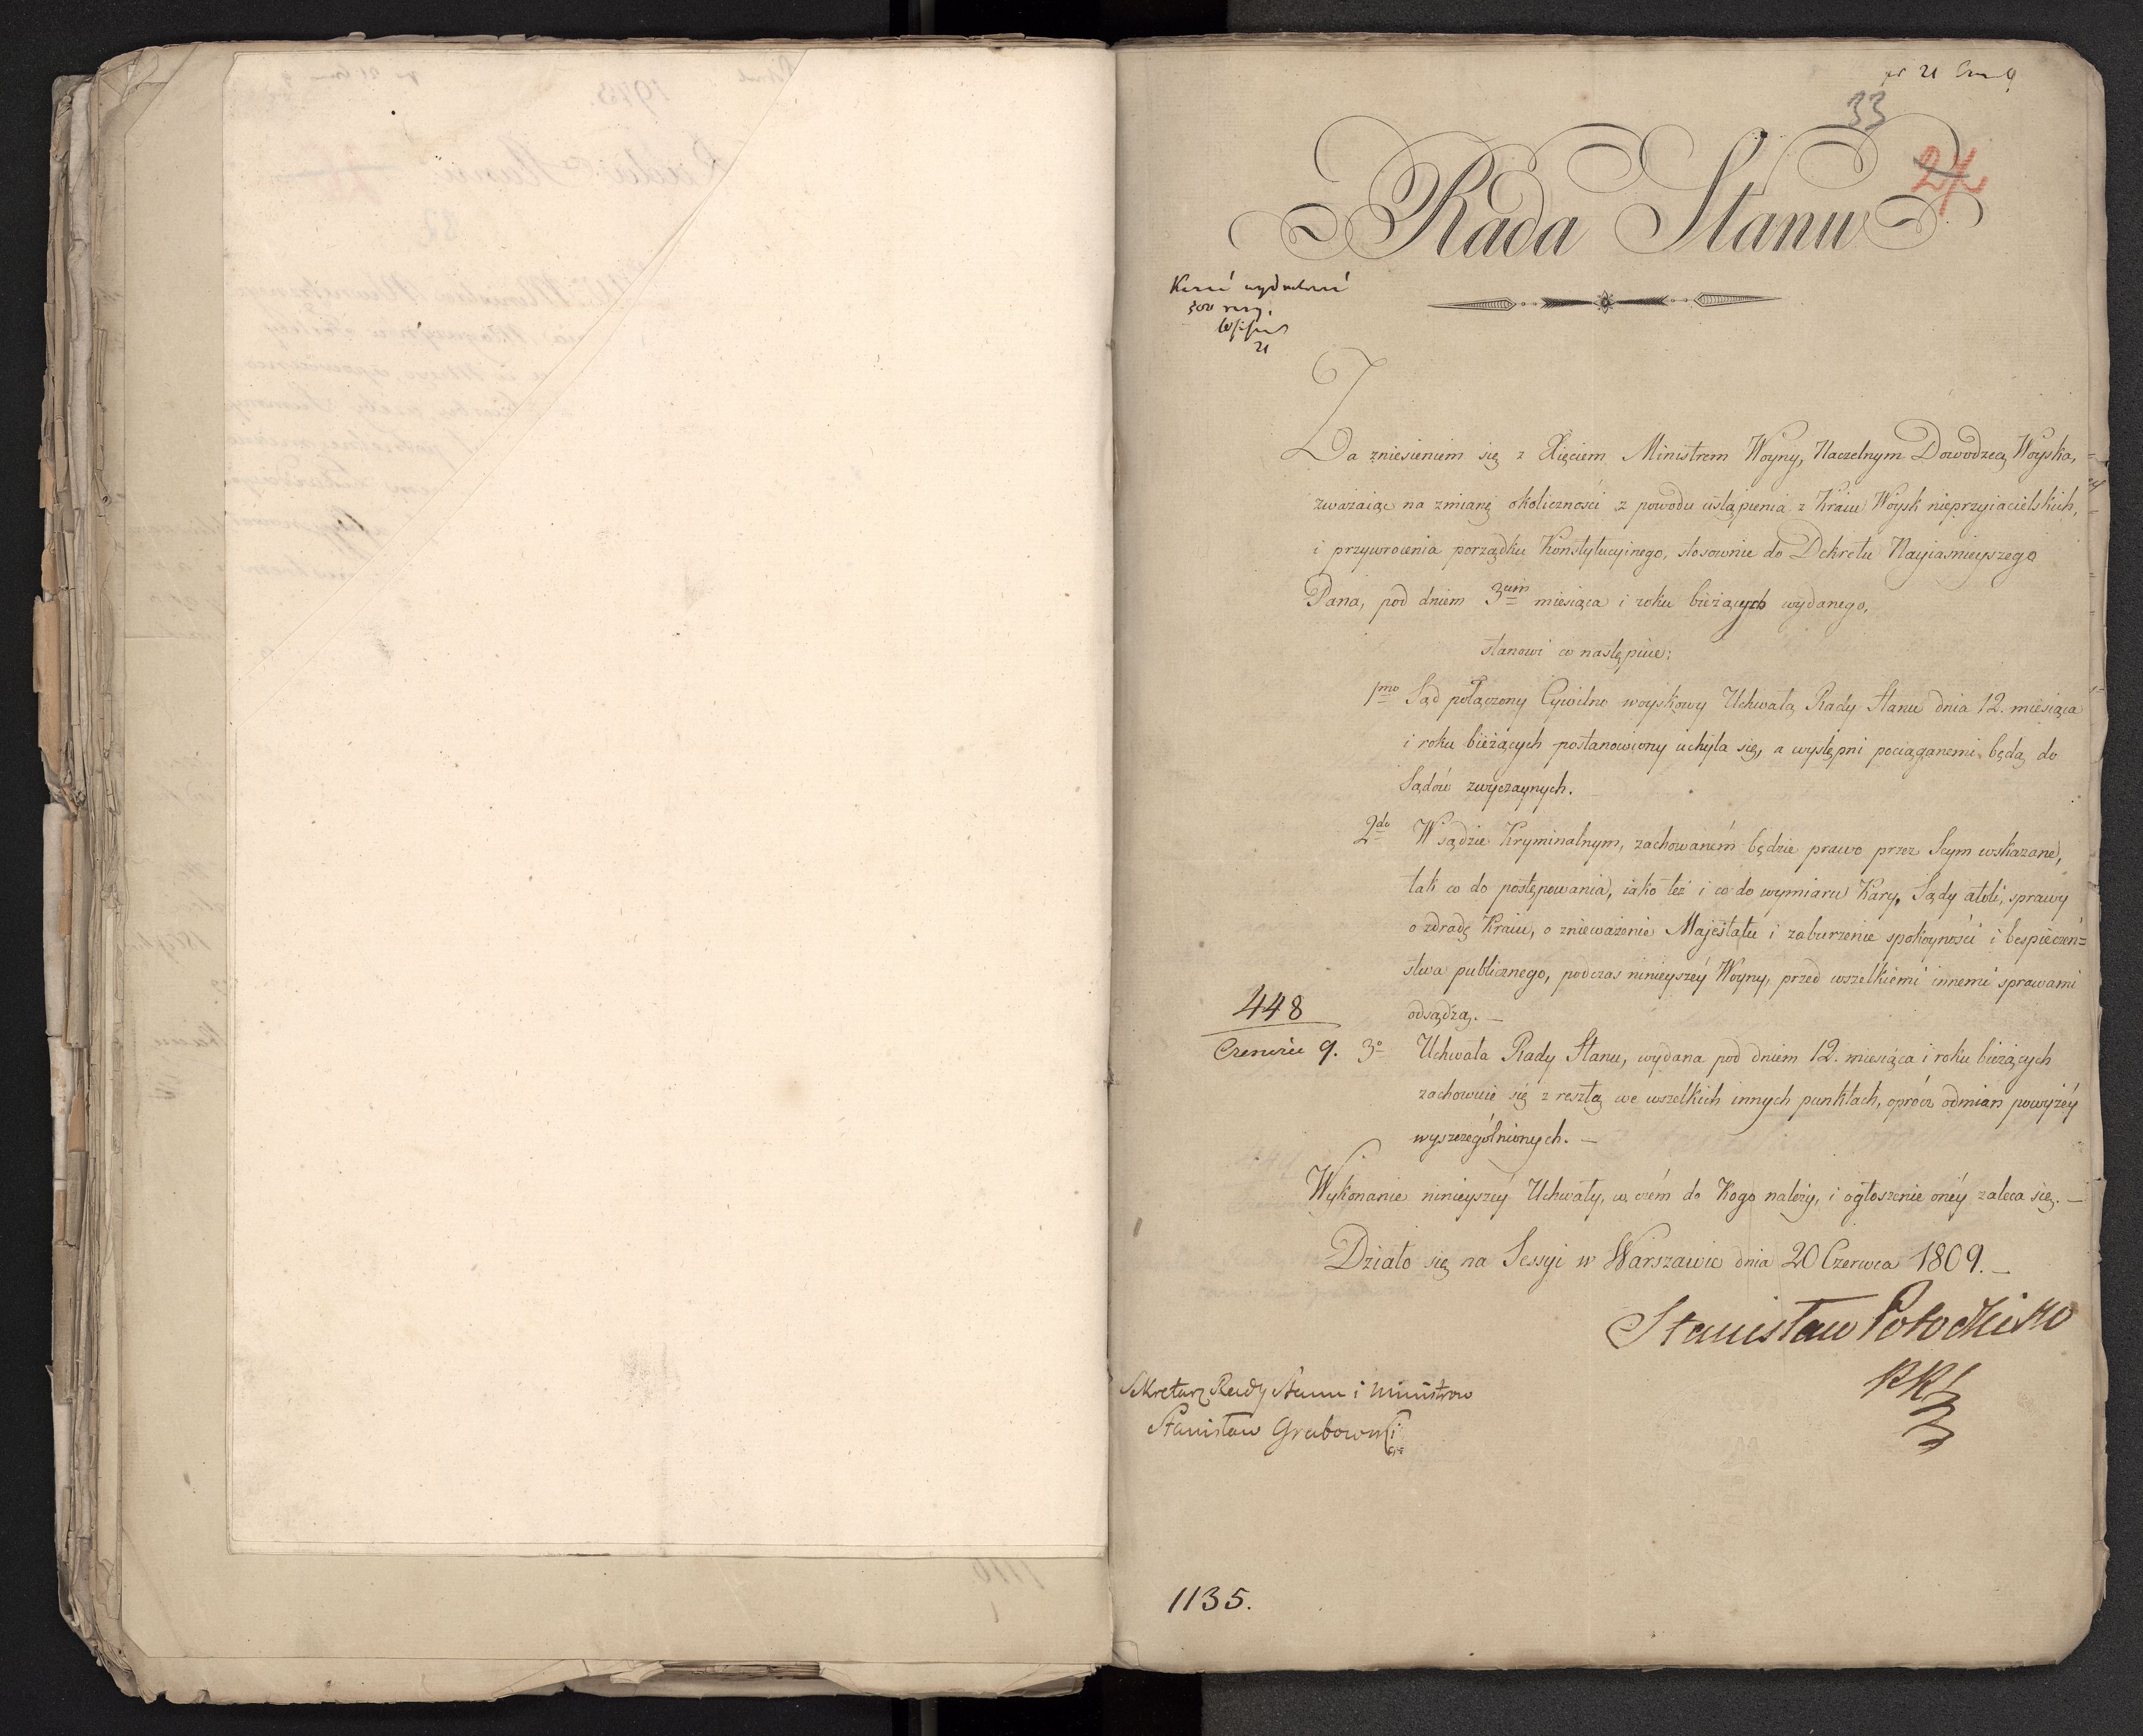 pr 21 Cza 9
33
Rada Stanu
Kazać wydrukować
500 exp.
21
Za zniesieniem się z Xięciem Ministrem Woyny, Naczelnym Dowodzcą Woyska,
zważaiąc na zmianę okoliczności z powodu ustąpienia z Kraiu Woysk nieprzyiacielskich,
i przywrocenia porządku Konstytucyinego, stosownie do Dekretu Nayiasnieyszego
Pana, pod dniem 3cim miesiąca i roku bieżących wydanego,
stanowi co następuie:
1mo Sąd połączony Cywilno woyskowy Uchwałą Rady Stanu dnia 12. miesiąca
i roku bieżących postanowiony uchyla się, a występni pociąganemi będą do
Sądów zwyczaynych.
2do W sądzie Kryminalnym, zachowaném będzie prawo przez Seym wskazane,
tak co do postępowania, iako też i co do wymiaru Kary. Sądy atoli, sprawy
o zdradę Kraiu, o znieważenie Majestatu i zaburzenie spokoyności i bespieczeń=
stwa publicznego, podczas ninieyszéy Woyny, przed wszelkiemi innemi sprawami
odsądzą. —
448
Czerwiec 9.
3o Uchwała Rady Stanu, wydana pod dniem 12. miesiąca i roku bieżących
zachowuie się z resztą we wszelkich innych punktach, oprócz odmian powyżéy
wyszczególnionych. —
Wykonanie ninieyszéy Uchwały, w czém do Kogo należy, i ogłoszenie onéy zaleca się. —
Działo się na Sessyi w Warszawie dnia 20 Czerwca 1809. —
Stanisław Potocki
Sekretarz Rady Stanu i Ministrow
Stanisław Grabowski
1135.